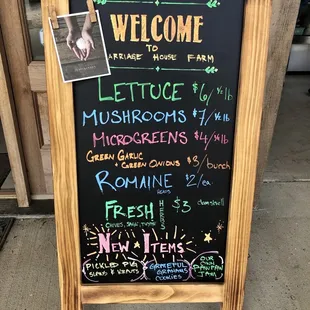 WELCOME
TO
CARRIAGE HOUSE FARM
LETTUCE $6/½lb
MUSHROOMS $7/½lb
MICROGREENS $4/¼lb
GREEN GARLIC
+ GREEN ONIONS $3/bunch
ROMAINE HEADS $2/ea.
FRESH HERBS $3 clamshell
CHIVES, SAGE, THYME
NEW ITEMS
PICKLED PIG
GRATEFUL
GRAHAMS
COOKIES
OUR
OWN
PAWPAW
JAM